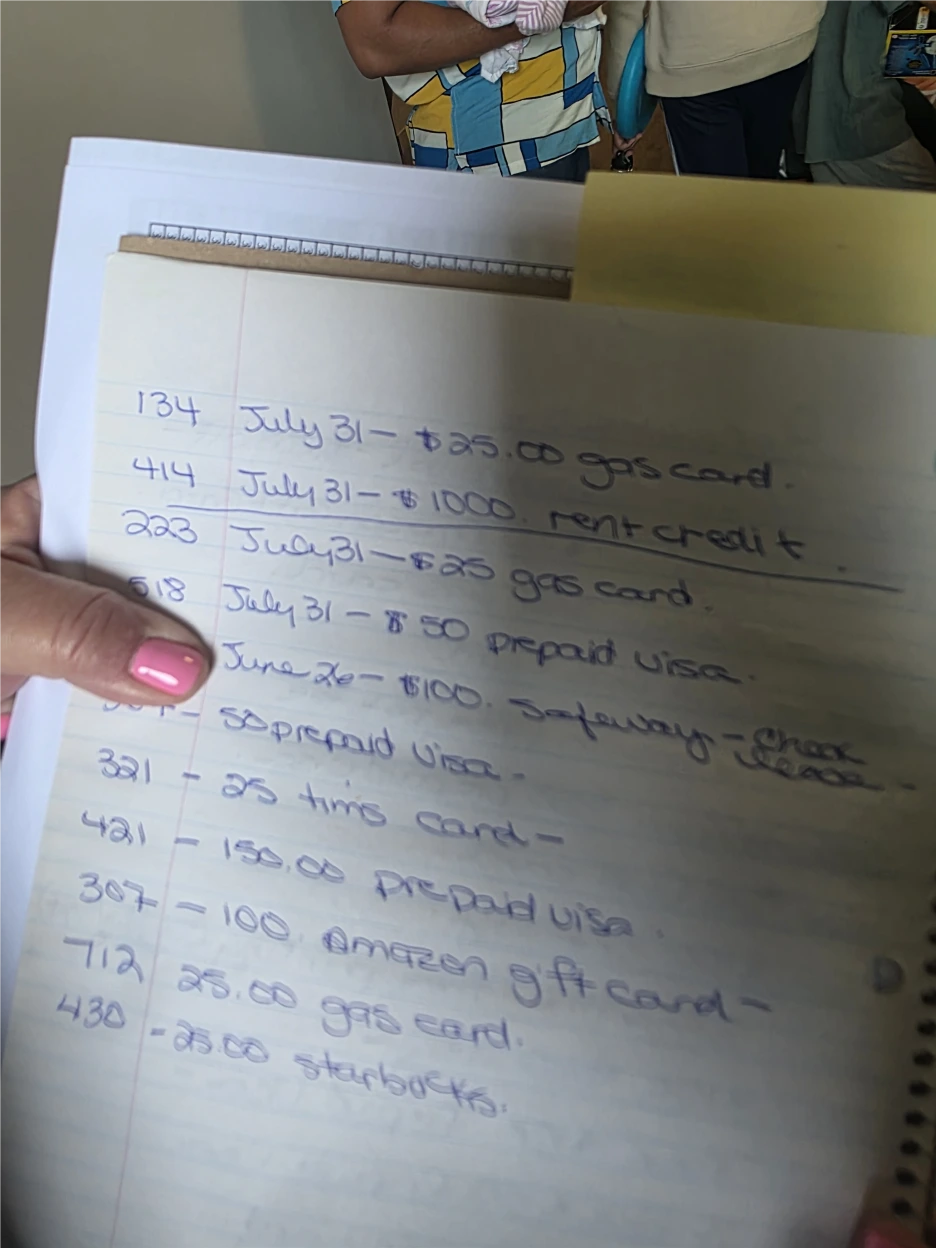 134 July 31 - $25.00 gas card.
414 July 31 - $1000. rent credit.
223 July 31 - $25 gas card.
518 July 31 - $50 prepaid visa.
June 26 - $100. Safeway - check
lease -
- 50 prepaid visa -
321 - 25 tim's card -
421 - 150.00 prepaid visa.
307 - 100. Amazon gift card -
712 25.00 gas card.
430 - 25.00 starbucks.